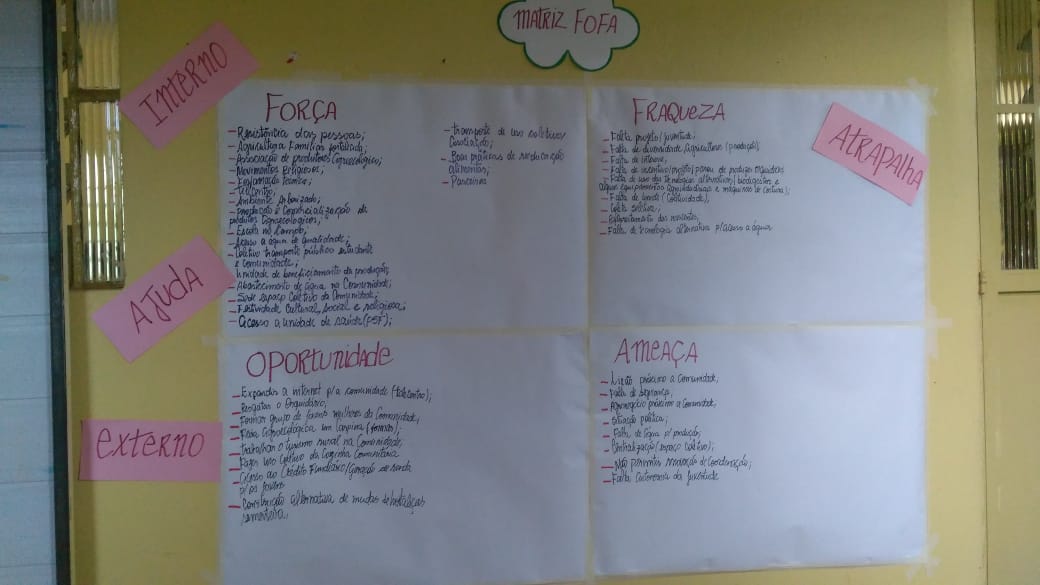 MATRIZ FOFA
INTERNO
AJUDA
EXTERNO
ATRAPALHA
FORÇA
– Resistência das pessoas;
– Agricultura Familiar fortalecida;
– Associação de produtores Agroecológico;
– Movimentos Religiosos;
– técnica;
– Telecentro;
– Ambiente Arborizado;
– Produção e Comercialização de
produtos Agroecologicos;
– Escola no Campo;
– Acesso a água de qualidade;
– Coletivo transporte público estudante
e comunidade;
– Unidade de beneficiamento da produção;
– Abastecimento de água na Comunidade;
– Sede espaço Coletivo da Comunidade;
– Festividade Cultural, social e religiosa;
– Acesso a unidade de saúde (PSF);
– transporte de uso coletivos
– Boas práticas de
alimentos;
– Parceiria
FRAQUEZA
– Falta projeto/juventude;
– Falta de diversidade/Agricultura (produção);
– Falta de
– Falta de incentivo/projeto/
– Falta de uso das tecnologias alternativas/biodigestor e
alguns equipamentos e máquinas de costura);
– Falta de
– Coleta seletiva;
– das nascentes;
– Falta de tecnologia alternativa p/acesso a água
OPORTUNIDADE
– Expandir a internet p/a comunidade (telecentro);
– Resgatar o Orquidário;
– Formar grupo de jovens mulheres da Comunidade;
– Feira Agroecológica em (formar);
– trabalhar o turismo rural na Comunidade;
– Fazer uso Coletivo da Cozinha Comunitária
– Acesso ao Crédito Fundiário/Geração de renda
p/os jovens
– Construção alternativa de mudas de hortaliças
sementeira;
AMEAÇA
– Lixão próximo a Comunidade;
– Falta de Segurança;
– Agronegócio próximo a Comunidade;
– Situação política;
– Falta de água p/ produção;
– Centralização (espaço Coletivo);
– Não permitir renovação de Coordenação;
– Falta autonomia da juventude